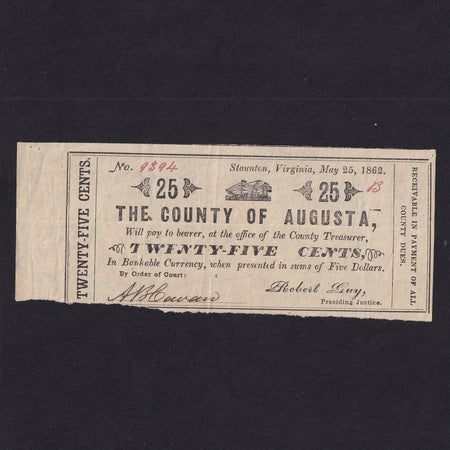 TWENTY-FIVE CENTS.
No. 9394 Staunton, Virginia, May 25, 1862.
25 25 B
THE COUNTY OF AUGUSTA,
Will pay to bearer, at the office of the County Treasurer,
TWENTY-FIVE CENTS,
In Bankable Currency, when presented in sums of Five Dollars.
By Order of Court:
Robert Guy,
Presiding Justice.
RECEIVABLE IN PAYMENT OF ALL
COUNTY DUES.